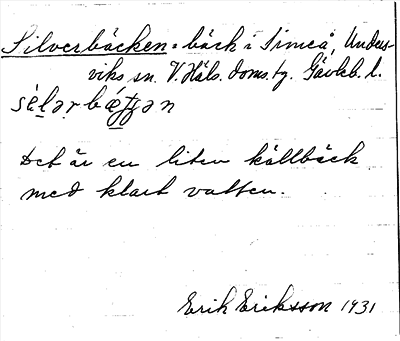 Silverbäcken = bäck i Simeå, Unders-
viks sn. V. Häls. doms.tg. Gävleb. l.
Det är en liten källbäck
med klart vatten.
Erik Eriksson 1931